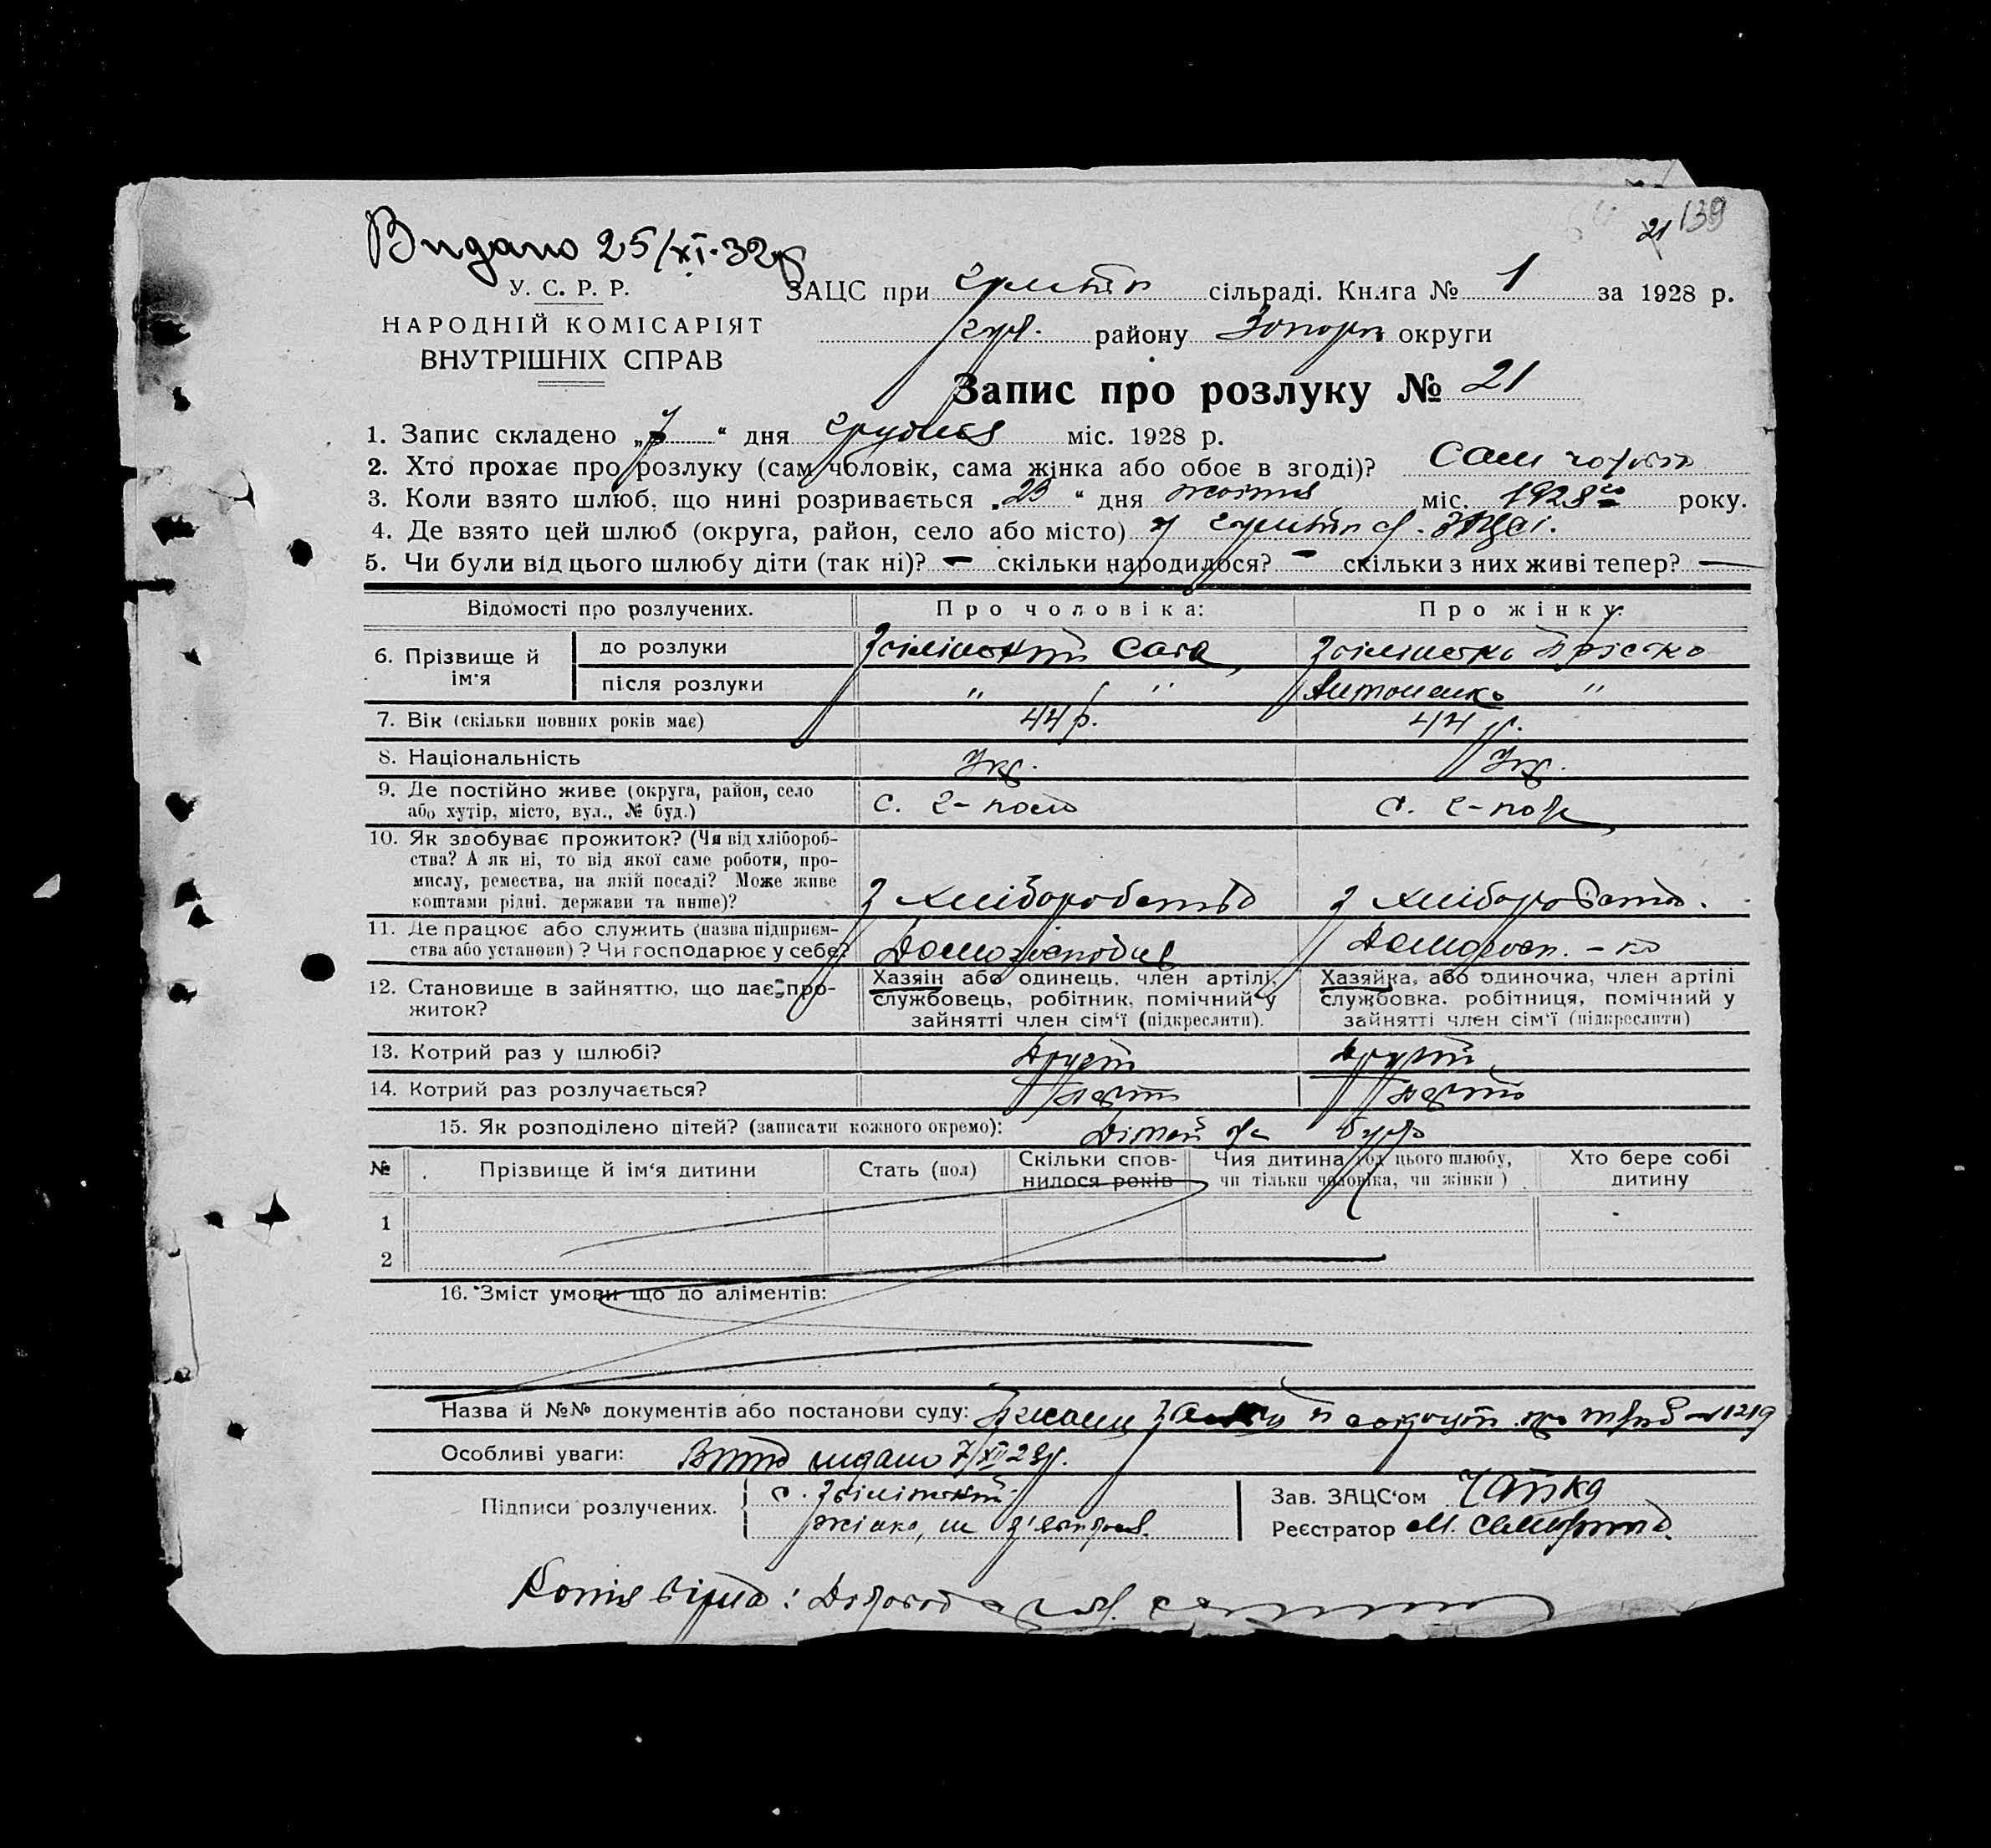 139
21
Видано 25/XI-32р
У. С. Р. Р.
НАРОДНІЙ КОМІСАРІЯТ
ВНУТРІШНІХ СПРАВ
ЗАЦС при сільраді. Книга № 1 за 1928 р.
району Запоріз округи
Запис про розлуку № 21
1. Запис складено „7“ дня грудня міс. 1928 р.
2. Хто прохає про розлуку (сам чоловік, сама жінка або обоє в згоді)? Сам чоловік
3. Коли взято шлюб, що нині розривається „23“ дня жовтня міс. 1928го року.
4. Де взято цей шлюб (округа, район, село або місто) У с. ЗАЦСі.
5. Чи були від цього шлюбу діти (так ні)? — скільки народилося? — скільки з них живі тепер? —
Відомості про розлучених. Про чоловіка: Про жінку:
6. Прізвище й ім'я
до розлуки Сава
після розлуки " " Антоненко "
7. Вік (скільки повних років має) 44 р. 44 р.
8. Національність Укр. Укр.
9. Де постійно живе (округа, район, село
або хутір, місто, вул., № буд.) с. Г-поле с. Г-поле
10. Як здобуває прожиток? (Чи від хлібороб-
ства? А як ні, то від якої саме роботи, про-
мислу, ремества, на якій посаді? Може живе
коштами рідні. держави та инше)? З хліборобства З хліборобства.
11. Де працює або служить (назва підприєм-
ства або установи)? Чи господарює у себе? Домогосподар Домогосп. - ка
12. Становище в зайняттю, що дає про-
житок?
Хазяін або одинець, член артілі,
службовець, робітник, помічний у
зайнятті член сім'ї (підкреслити).
Хазяйка, або одиночка, член артілі
службовка, робітниця, помічний у
зайнятті член сім'ї (підкреслити)
13. Котрий раз у шлюбі? Другий Другий
14. Котрий раз розлучається?
15. Як розподілено дітей? (записати кожного окремо): Дітей не було
№ Прізвище й ім'я дитини Стать (пол) Скільки спов-
нилося років Чия дитина (од цього шлюбу,
чи тільки чоловіка, чи жінки) Хто бере собі
дитину
1
2
16. Зміст умови що до аліментів:
Назва й №№ документів або постанови суду: 1219
Особливі уваги: Витяг видано 7/XII 28р.
Підписи розлучених.
жінка, не з'явилась.
Зав. ЗАЦС'ом Чайка
Реєстратор М.
Копія вірна: Діловод